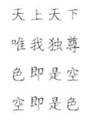 天上天下
唯我独尊
色即是空
空即是色